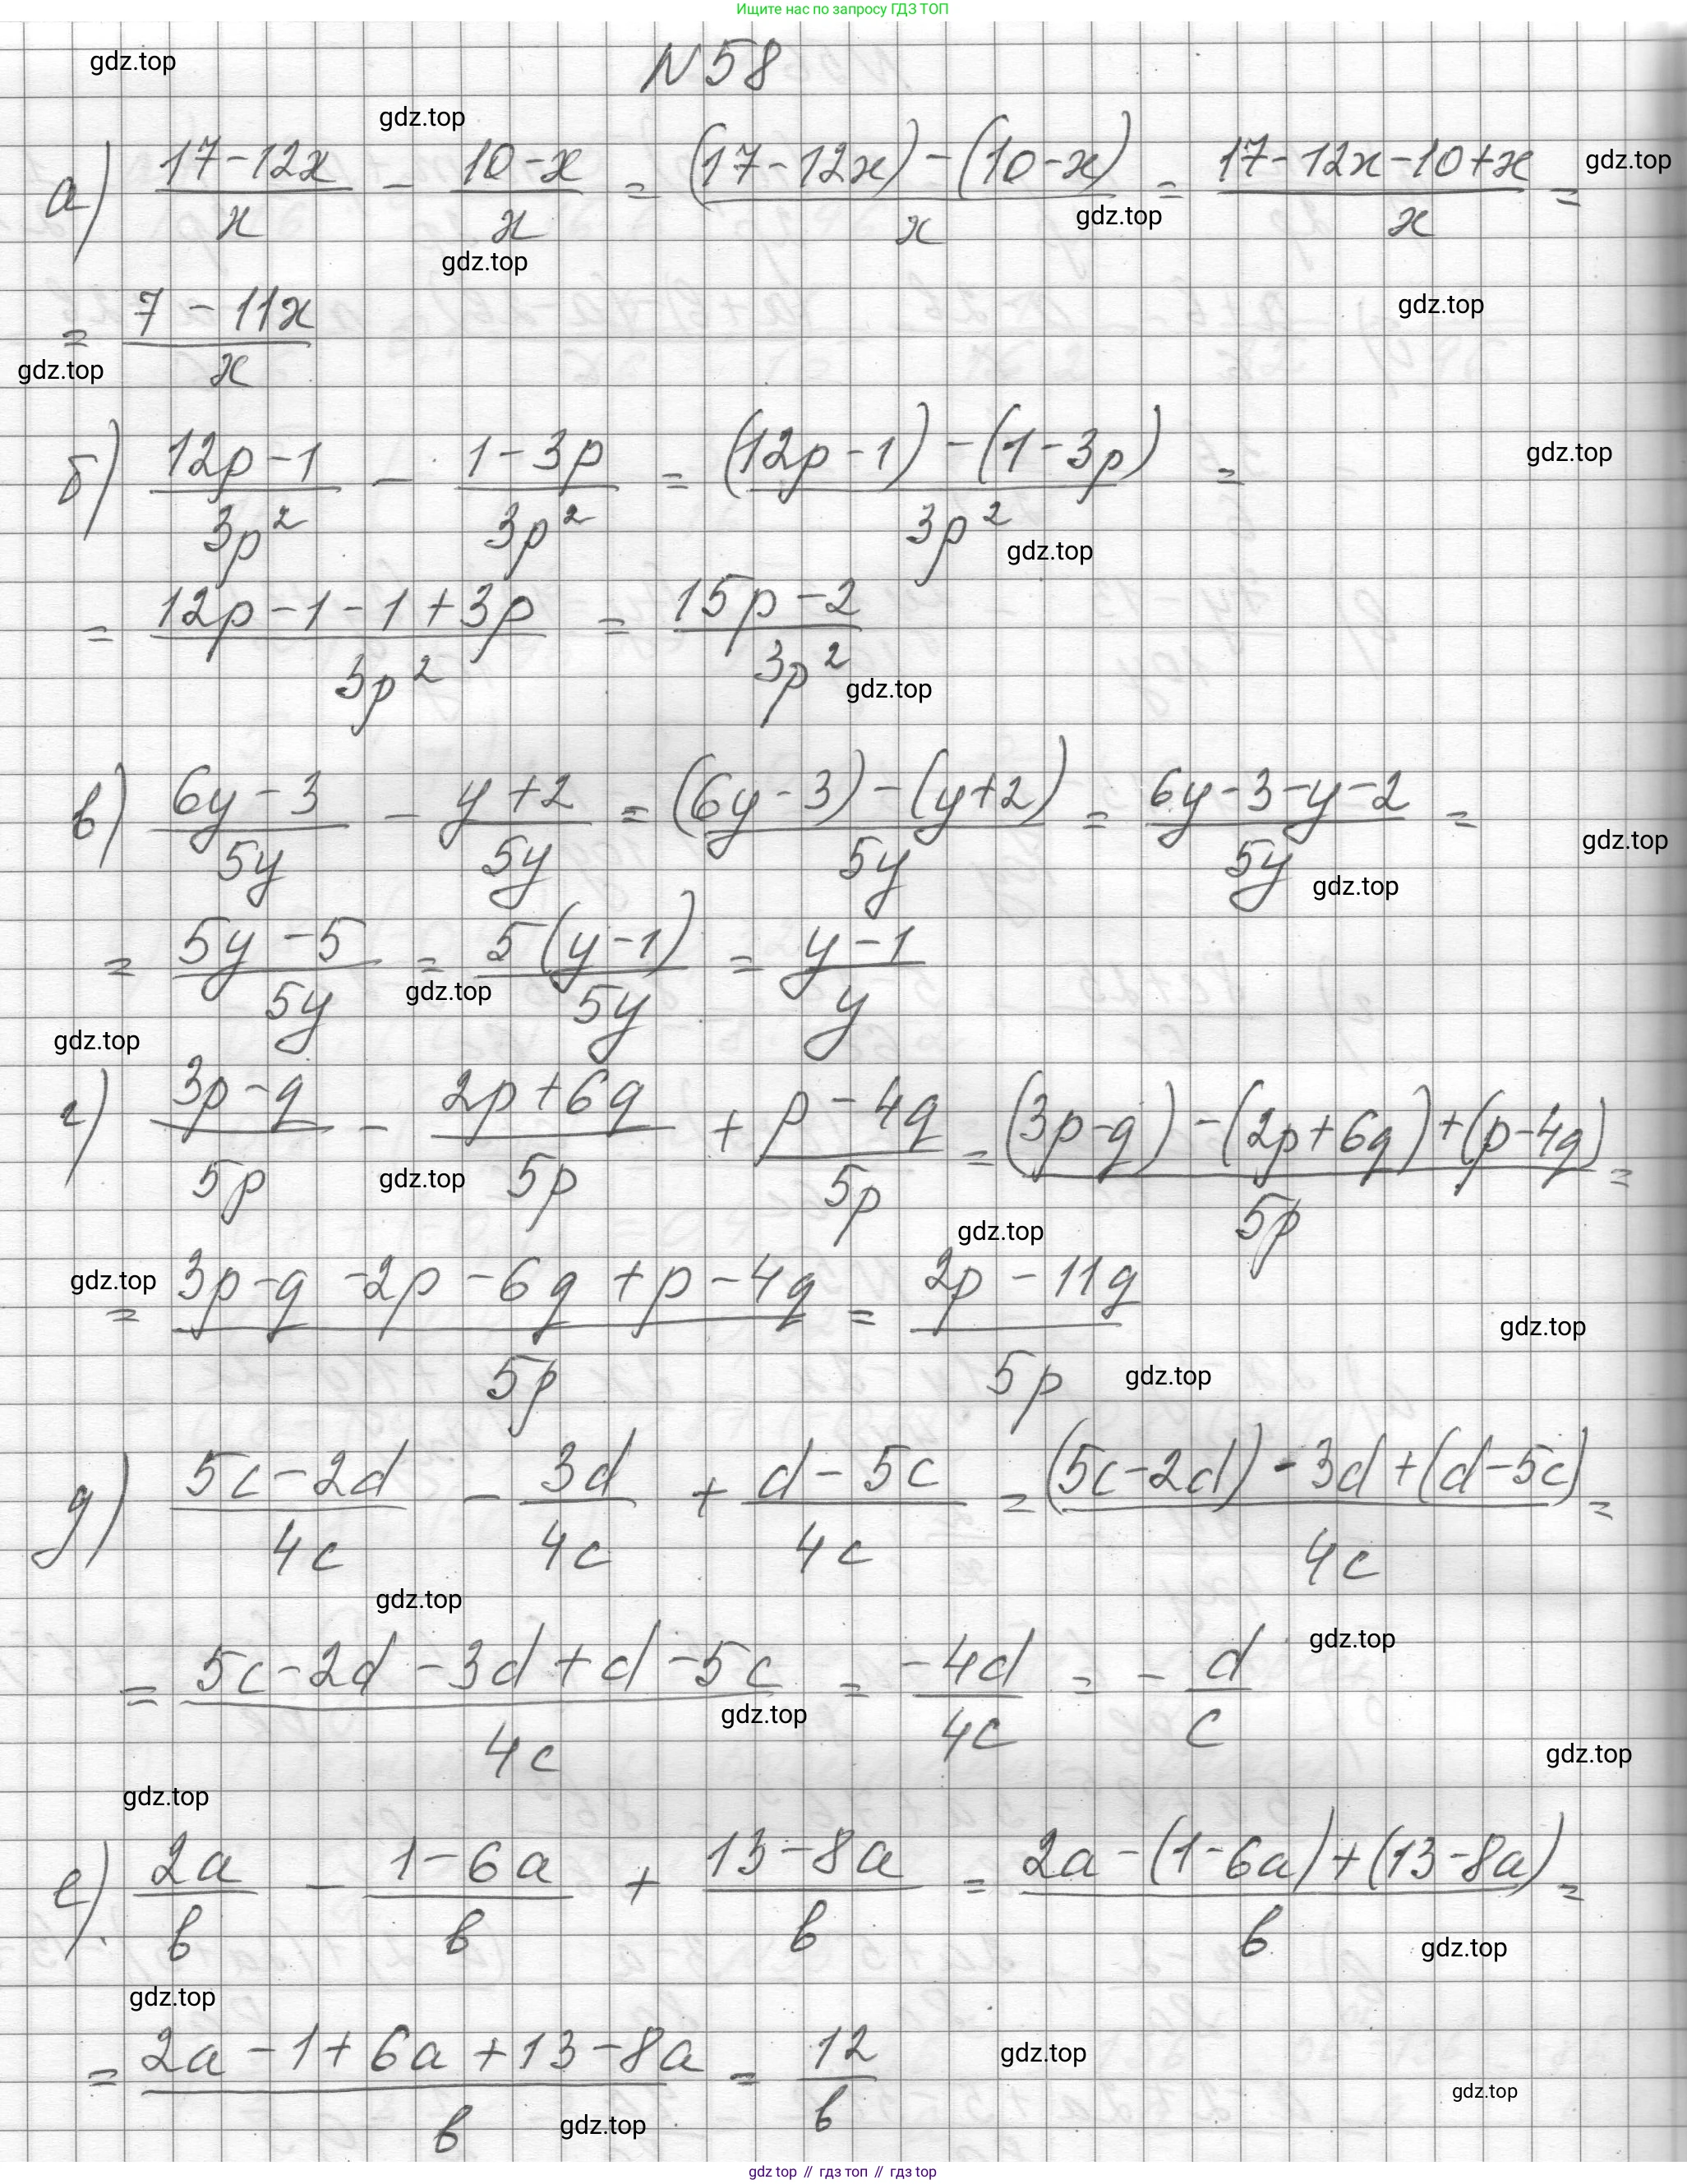 Ищите нас по запросу ГДЗ ТОП
gdz.top
N 58
gdz.top
а) (17-12x)/x - (10-x)/x = ((17-12x)-(10-x))/x = (17-12x-10+x)/x =
gdz.top
gdz.top
gdz.top
= (7-11x)/x
gdz.top
gdz.top
б) (12p-1)/(3p²) - (1-3p)/(3p²) = ((12p-1)-(1-3p))/(3p²) =
gdz.top
gdz.top
= (12p-1-1+3p)/(3p²) = (15p-2)/(3p²)
gdz.top
в) (6y-3)/(5y) - (y+2)/(5y) = ((6y-3)-(y+2))/(5y) = (6y-3-y-2)/(5y) =
gdz.top
gdz.top
= (5y-5)/(5y) = (5(y-1))/(5y) = (y-1)/y
gdz.top
gdz.top
г) (3p-q)/(5p) - (2p+6q)/(5p) + (p-4q)/(5p) = ((3p-q)-(2p+6q)+(p-4q))/(5p) =
gdz.top
gdz.top
gdz.top
= (3p-q-2p-6q+p-4q)/(5p) = (2p-11q)/(5p)
gdz.top
gdz.top
д) (5c-2d)/(4c) - (3d)/(4c) + (d-5c)/(4c) = ((5c-2d)-3d+(d-5c))/(4c) =
gdz.top
gdz.top
= (5c-2d-3d+d-5c)/(4c) = (-4d)/(4c) = - d/c
gdz.top
gdz.top
gdz.top
е) (2a)/b - (1-6a)/b + (13-8a)/b = (2a-(1-6a)+(13-8a))/b =
gdz.top
gdz.top
= (2a-1+6a+13-8a)/b = 12/b
gdz.top
gdz.top
gdz.top
gdz top // гдз топ // гдз top